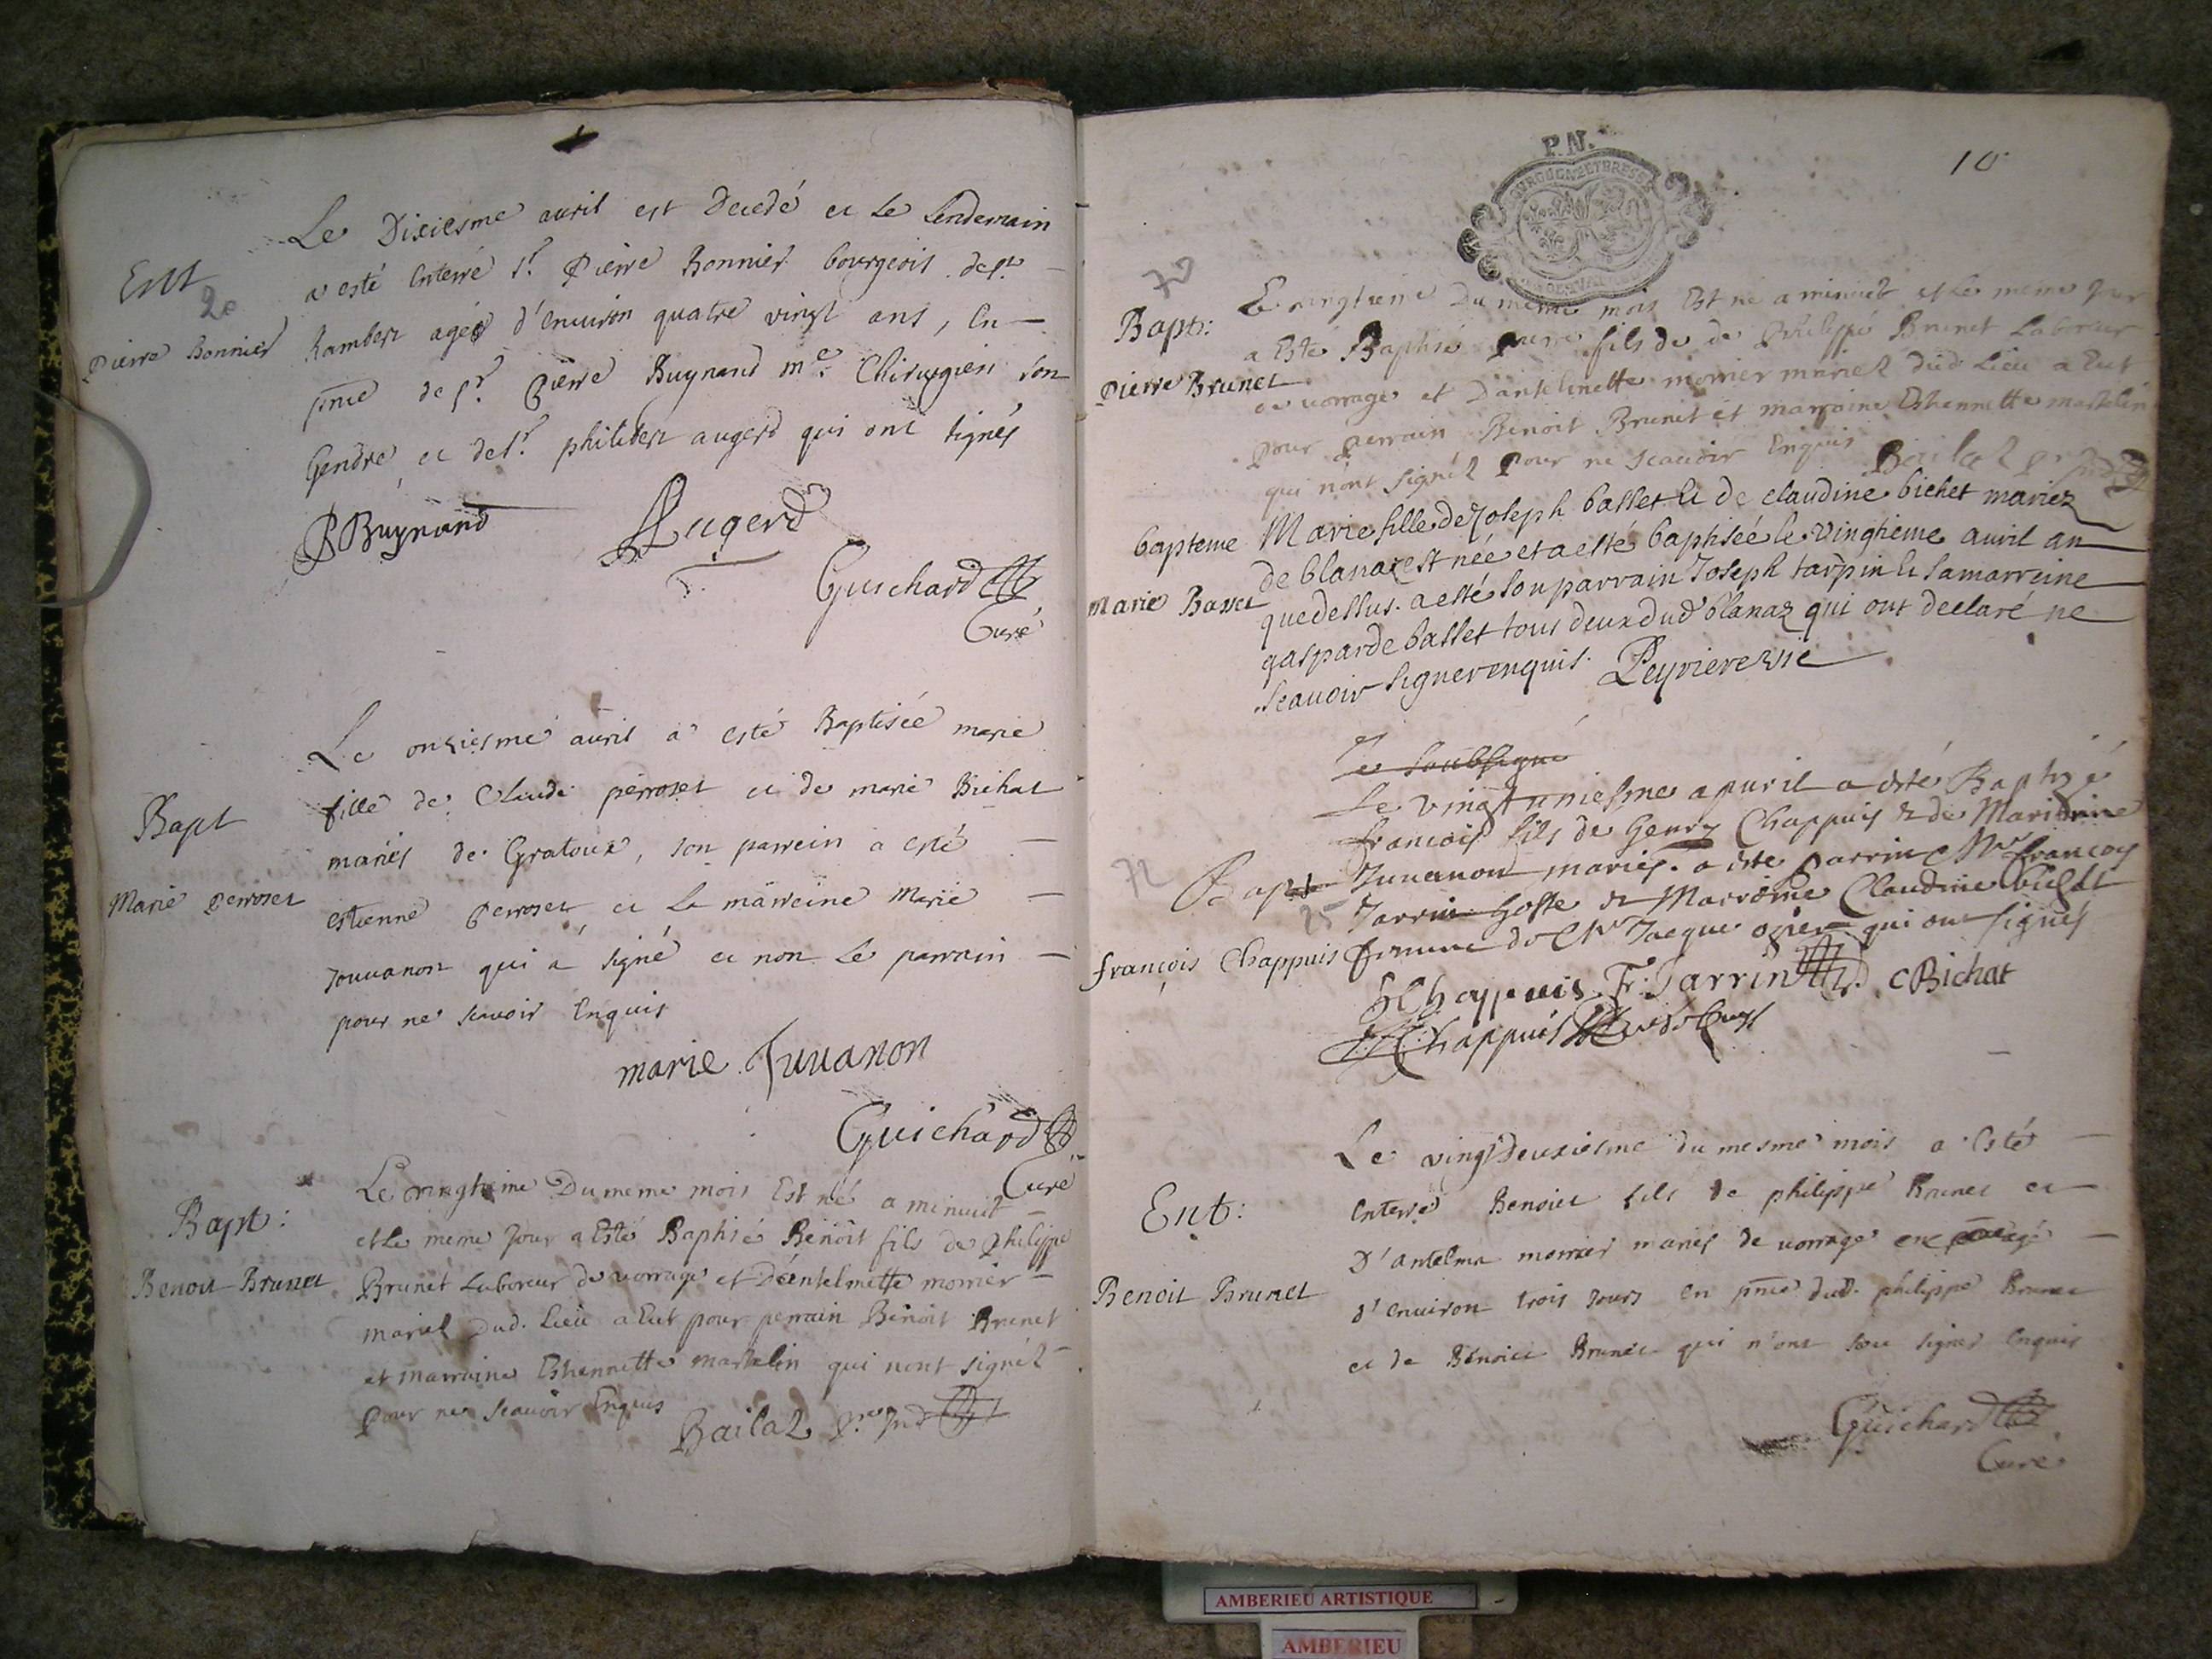 Le Dixiesme auril est decedé et le lendemain
Ent
a esté enterré Sr. Pierre Bonnier bourgeois de St
20
Pierre Bonnier
Rambert agée d'enuiron quatre vingt ans, en
pnce de Sr. Pierre Buynand me. Chirurgien son
gendre, et de Sr. philibert augerd qui ont signés
PBuynand
Augerd
Guichard
Curé
Le onziesme auril a esté Baptisée marie
Bapt
fille de Claude perroset et de marie Bichat
mariés de Gratoux, son parrein a esté
Marie perroset
estienne perroset et la marreine Marie
Jouuanon qui a signé et non le parrain
pour ne scauoir enquis
marie Juuanon
Guichard
Curé
Le vingtieme Du meme mois Est né a minuit
Bapt:
et le meme Jour a Esté Baptisé Benoit fils de philippe
Benoit Brunet
Brunet Laboreur de vorrage et D'antelmette monier
mariez dud. Lieu a Eut pour perrain Benoit Brunet
et marraine Ethennette martelin qui nont signéz
pour ne scauoir Enquis
Bailaz
P.N.
10
BOURGOGNE ET BRESSE
72
Le vingtieme Du meme mois Est né a minuit et le meme Jour
Bapt:
a Esté Baptisé pierre fils de de Philippe Brunet Laboreur
Pierre Brunet
de vorrage et D'antelmette monier mariez dud. Lieu a Eut
pour perrain Benoit Brunet et marraine Ethennette martelin
qui n'ont signéz pour ne scauoir Enquis
Bailaz
Marie fille de Joseph basset et de claudine bichet mariez
bapteme
de blanaz est née et a esté baptisée le vingtieme auril an
Marie Basset
que dessus. a esté son parrain Joseph tarpin et sa marreine
gasparde basset tous deux dud blanaz qui ont declaré ne
scauoir signer enquis. Peyriere vic
Je soubsigné
Le vingt uniesme apuril a esté Baptizé
francois fils de Henry Chappuis & de
72
Bapt
Juuanon mariés. a este parrin Mr francoy
25
Jarrin & Marroine Claudine bichat
françois Chappuis
femme de Mr Jacque ogier qui ont signés
HChappuis Fr. Jarrin CBichat
Chappuis
Le vingtDeuxiesme du mesme mois a Esté
Ent:
enterré Benoit fils de philippe Brunet et
D'antelma monier mariés de vorrage
Benoit Brunet
d'enuiron trois Jours en pnce dud. philippe Brunet
et de Benoit Brunet qui n'ont sceu signer enquis
Guichard
Curé
AMBERIEU ARTISTIQUE
AMBERIEU